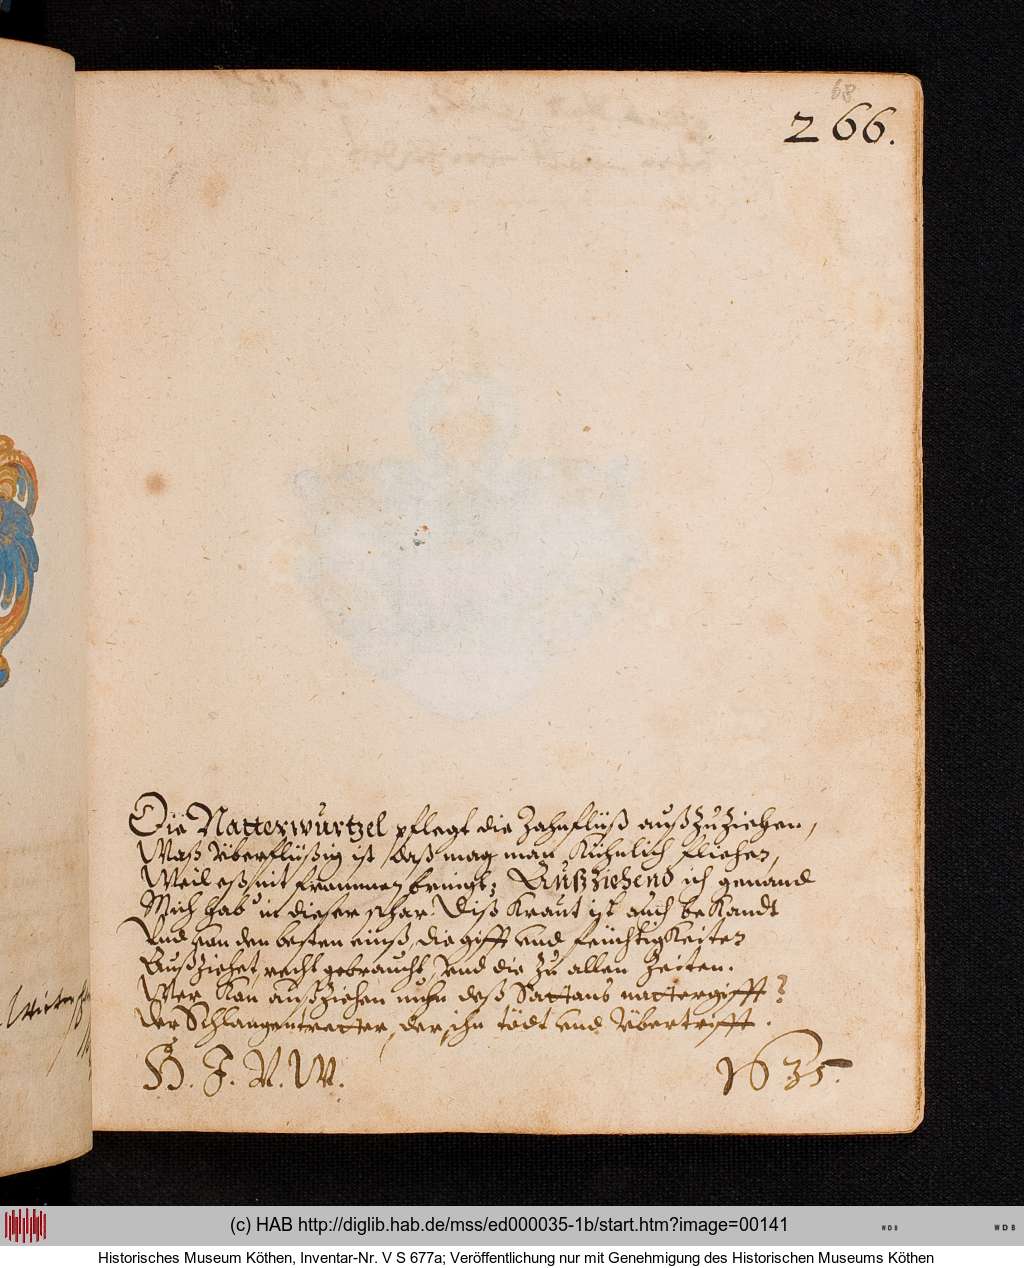 68
266.
Die Natterwurtzel pflegt die Zahnflüß außzuziehen,
Waß Uberflüßig ist, daß mag man Kühnlich fliehen,
Weil eß nit frommen bringt; Außziehend ich genand
Mich hab in dieser schar. Diß Kraut ist auch bekandt
Und von den besten eins, die gifft und feuchtigkeiten
Außziehet, recht gebraucht, und die zu allen Zeiten.
Wer Kan außziehen nuhn deß Sattans nattergifft?
Der Schlangentretter, der ihn tödt und Ubertrifft.
H. J. V. W.
1635.
(c) HAB http://diglib.hab.de/mss/ed000035-1b/start.htm?image=00141
WDB
WDB
Historisches Museum Köthen, Inventar-Nr. V S 677a; Veröffentlichung nur mit Genehmigung des Historischen Museums Köthen